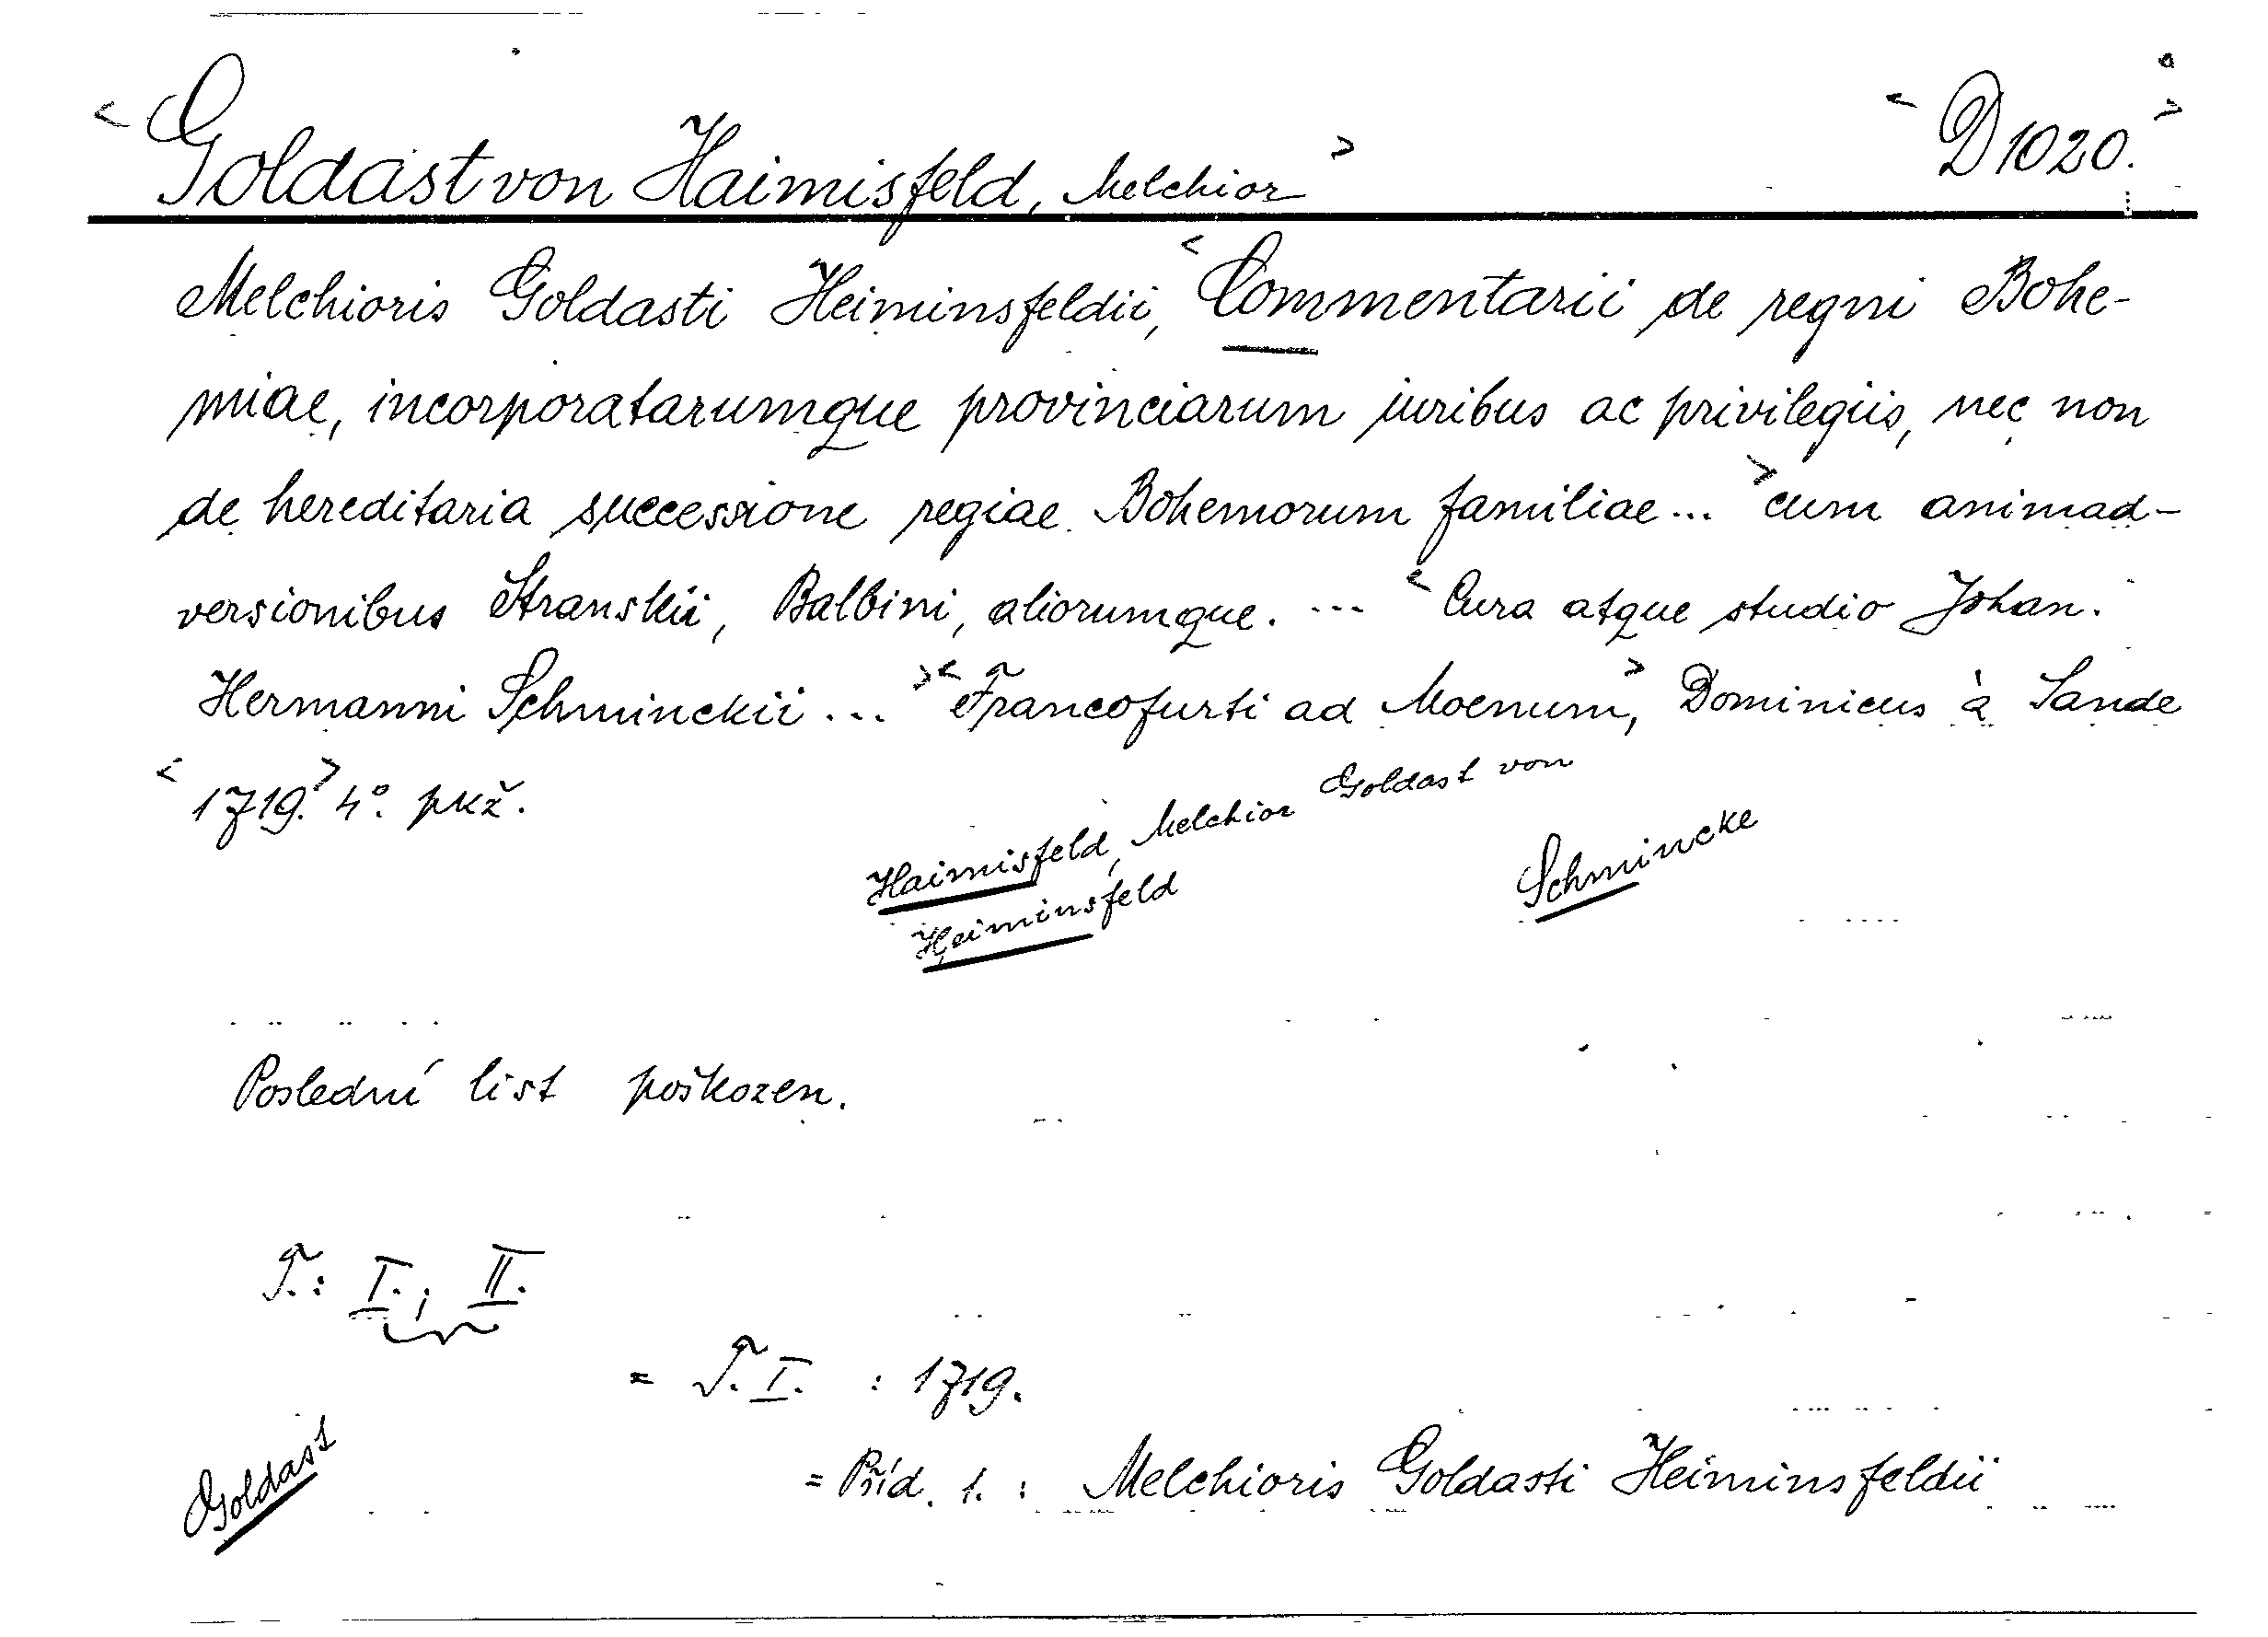 <Goldast von Haimisfeld, Melchior> <D 1020.>
Melchioris Goldasti Heiminsfeldii, <Commentarii de regni Bohe-
miae, incorporatarumque provinciarum iuribus ac privilegiis, nec non
de hereditaria successione regiae Bohemorum familiae...> cum animad-
versionibus Stranskii, Balbini, aliorumque. ... <Cura atque studio Johan.
Hermanni Schminckii ...> <Francofurti ad Moenum>, Dominicus à Sande
<1719.> 4°. pkž.
Haimisfeld, Melchior Goldast von
Heiminsfeld
Schmincke
Poslední list poškozen.
T.: I.; II.
= T. I. : 1719.
= Příd. 1. : Melchioris Goldasti Heiminsfeldii
Goldast